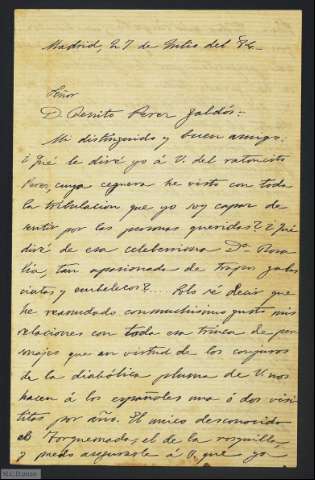 Madrid, 27 de Julio del 84.
Señor
D. Benito Perez Galdós:
Mi distinguido y buen amigo:
¿Qué le diré yo á V. del ratoncito
Perez, cuya ceguera he visto con toda
la tribulacion que yo soy capaz de
sentir por las personas queridas? ¿Qué
diré de esa celeberrima Dª Rosa
lia, tan apasionada de trapos, galas
y embelecos?... Solo sé decir que
he reanudado con muchísimo gusto mis
relaciones con toda esa trinca de per
sonajes que en virtud de los conjuros
de la diabólica pluma de V. nos
hacen á los españoles una ó dos visi
titas por año. El único desconocido
el Torquemada, el de la rosquilla,
y puedo asegurarle á V. que ya